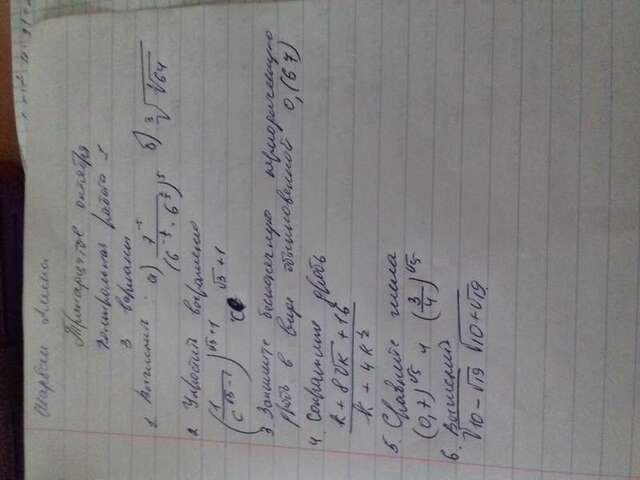 Алина
Тринадцатое октября
Контрольная работа 1
3 вариант
1 Вычислить а) 7⁻⁵ / (6^…)⁵ б) ∛√64
2 Упростить выражение
(1 / c^(√3-1))^(√3+1) c^(√3+1)
3 Запишите бесконечную периодическую
дробь в виде обыкновенной 0,(67)
4. Сократите дробь
(k + 8√k + 16) / (k + 4k^½)
5. Сравните числа
(0,7)^√5 и (3/4)^√5
6. Вычислить
√(10 - √19) √(10 + √19)